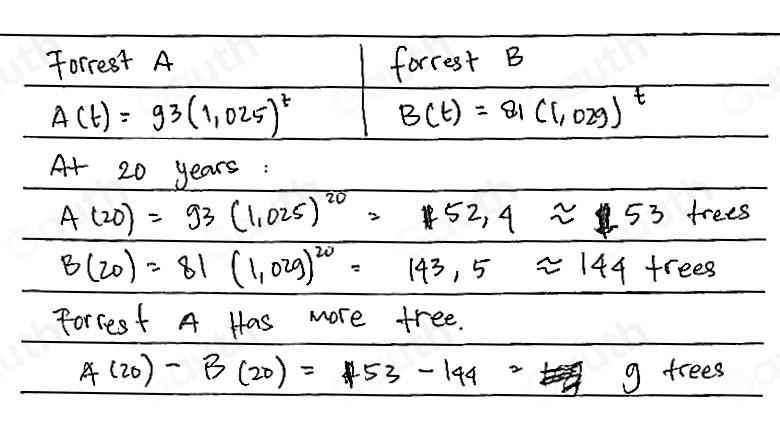 Forrest A forrest B
A(t) = 93(1,025)^t B(t) = 81(1,029)^t
At 20 years :
A(20) = 93 (1,025)^20 = 152,4 ≈ 153 trees
B(20) = 81 (1,029)^20 = 143,5 ≈ 144 trees
Forrest A Has more tree.
A(20) - B(20) = 153 - 144 = 9 trees